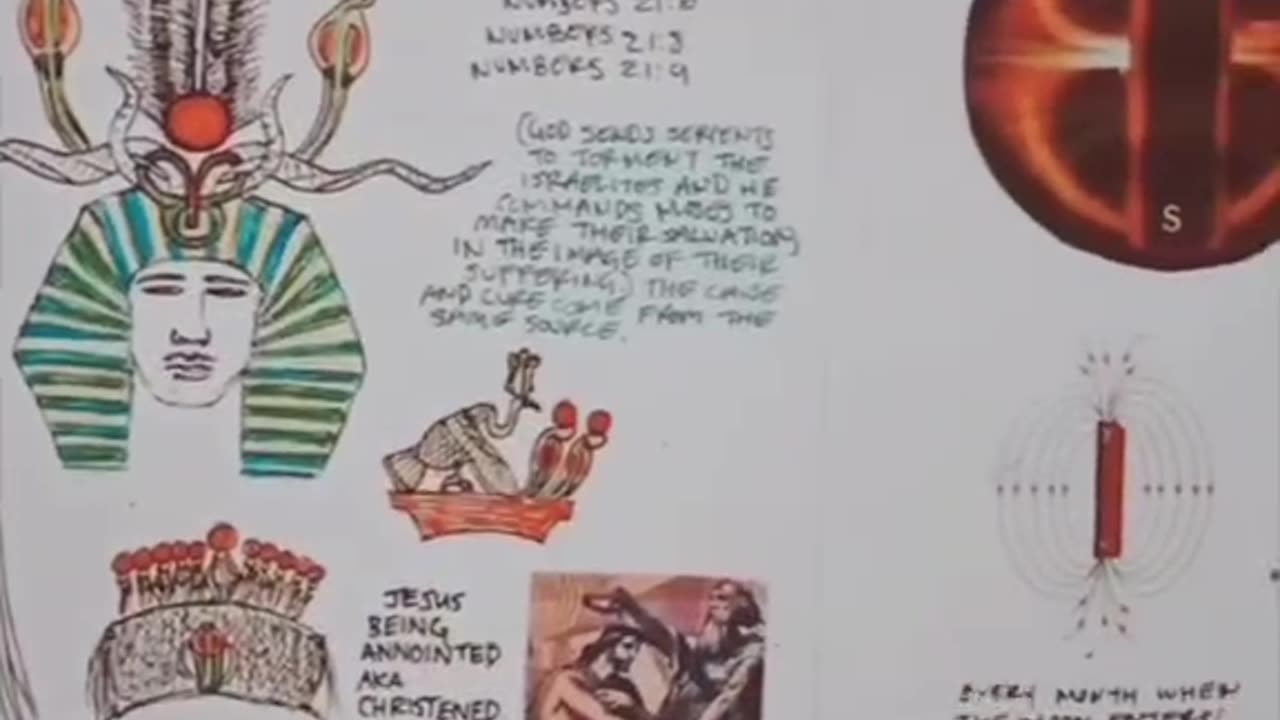 NUMBERS 21:8
NUMBERS 21:9
(GOD SENDS SERPENTS
TO TORMENT THE
ISRAELITES AND HE
COMMANDS MOSES TO
MAKE THEIR SALVATION
IN THE IMAGE OF THEIR
SUFFERING.) THE CAUSE
AND CURE COME FROM THE
SAME SOURCE.
S
JESUS
BEING
ANNOINTED
AKA
CHRISTENED
EVERY MONTH WHEN
THE MOON ENTERS